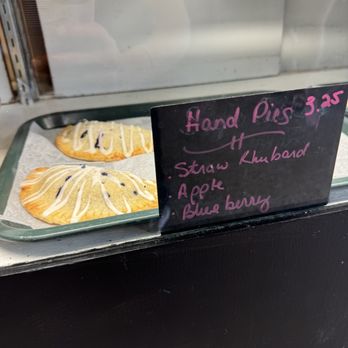 Hand Pies 3.25
. Straw Rhubard
. Apple
. Blue berry